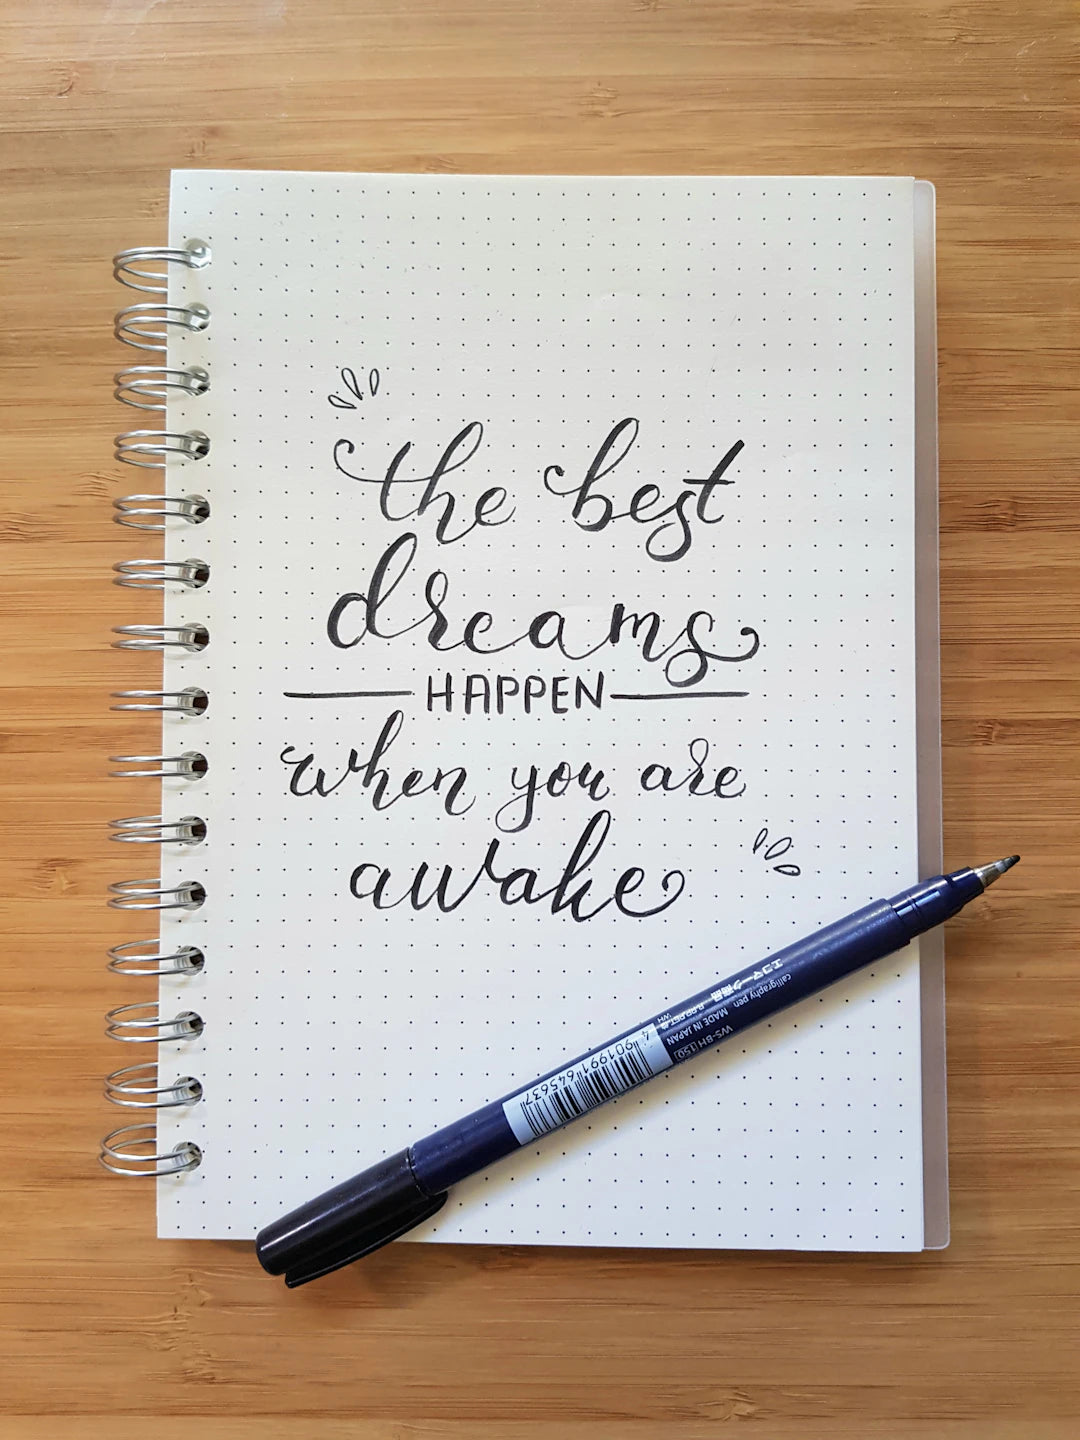 the best
dreams
HAPPEN
when you are
awake
エコマーク商品
calligraphy pen
MADE IN JAPAN
WS-BH 150
4 901991 645637